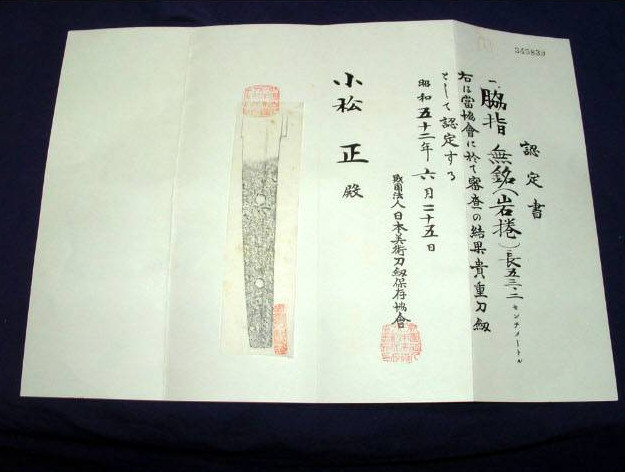 認定書
一、脇指 無銘(岩捲)長五三・二センチメートル
右は當協會に於て審査の結果貴重刀劔
として認定する
昭和五十二年六月二十五日
財團法人日本美術刀劔保存協會
小松 正 殿